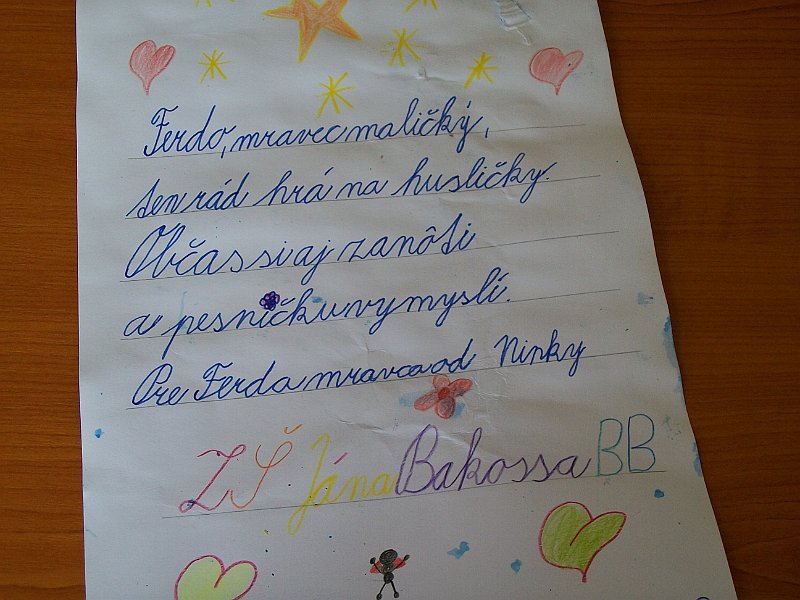 Ferdo, mravec maličký,
ten rád hrá na husličky.
Občas si aj zanôti
a pesničku vymyslí.
Pre Ferda mravca od Ninky
ZŠ Jána Bakossa BB